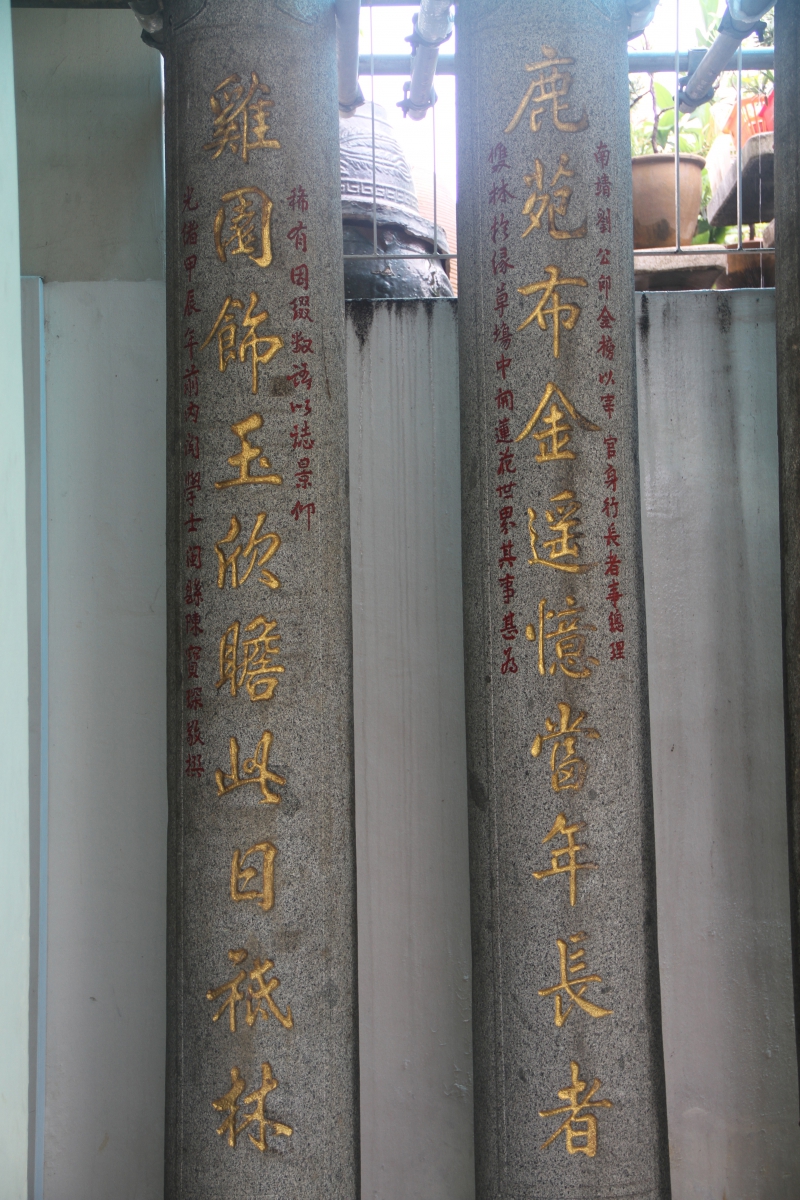 南靖劉公即金榜以宰官身行長者事總理
鹿苑布金遥憶當年長者
雙林於綠草塲中開蓮花世界其事甚為
稀有因綴数語以誌景仰
雞園飾玉欣瞻此日祗林
光緒甲辰年前內閣學士閩縣陳寶琛敬撰